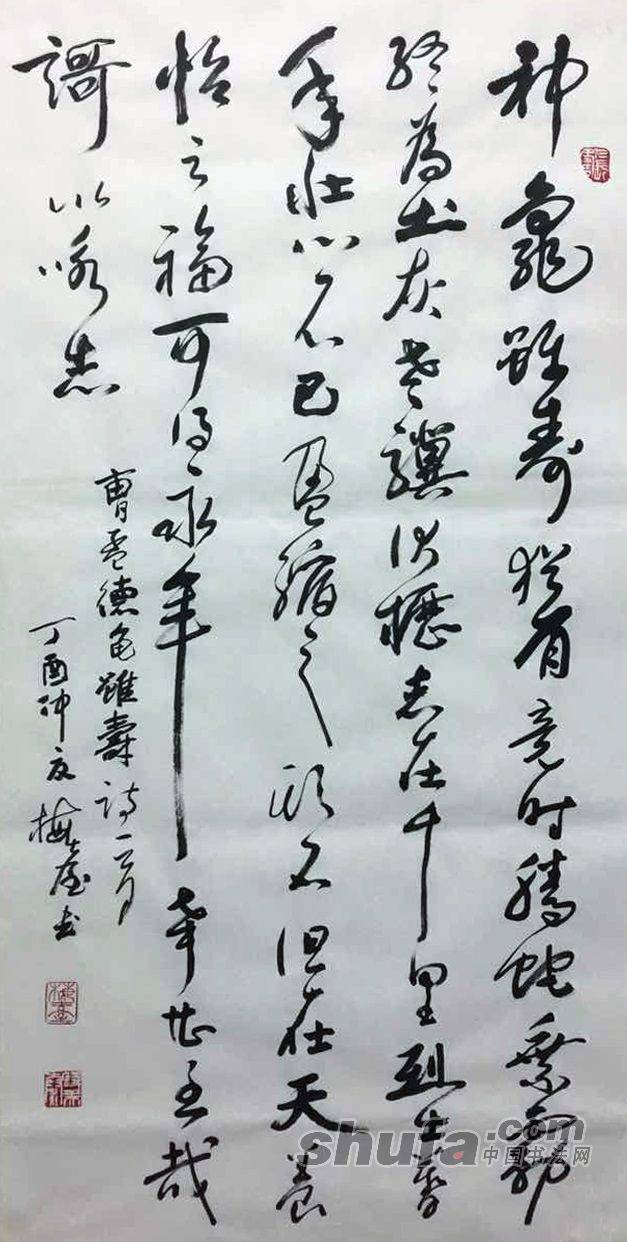 神龜雖寿猶有竟时騰蛇乘霧
終為土灰老驥伏櫪志在千里烈士暮
年壯心不已盈縮之期不但在天養
怡之福可得永年幸甚至哉
謌以咏志
曹孟德龟雖壽诗一首
丁酉仲夏梅书
shufa.com
中国书法网